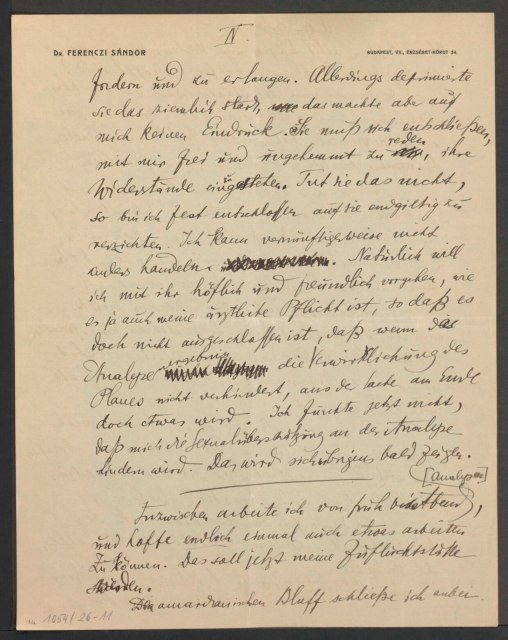 IV.
Dr. FERENCZI SÁNDOR
BUDAPEST, VII., ERZSÉBET-KÖRUT 54.
fordern und zu erlangen. Allerdings deprimierte
sie das ziemlich stark, das machte aber auf
mich keinen Eindruck. Sie muß sich entschließen,
mit mir frei und ungehemmt zu reden, ihre
Widerstände einzugestehen. Tut sie das nicht,
so bin ich fest entschlossen auf sie endgiltig zu
verzichten. Ich kann vernünftigerweise nicht
anders handeln. Natürlich will
ich mit ihr höflich und freundlich vorgehen, wie
es ja auch meine ärztliche Pflicht ist, so daß es
doch nicht ausgeschlossen ist, daß wenn das
Analysenergebnis die Verwirklichung des
Planes nicht verhindert, aus der Sache am Ende
doch etwas wird. Ich fürchte jetzt nicht,
daß mich die Sexualüberschätzung an der Analyse
hindern wird. Das wird sich übrigens bald zeigen.
[Analysen]
Inzwischen arbeite ich von früh bis Abend,
und hoffe endlich einmal auch etwas arbeiten
zu können. Das soll jetzt meine Zufluchtsstätte
werden.
Den amerikanischen Bluff schließe ich anbei.
1054/26-11